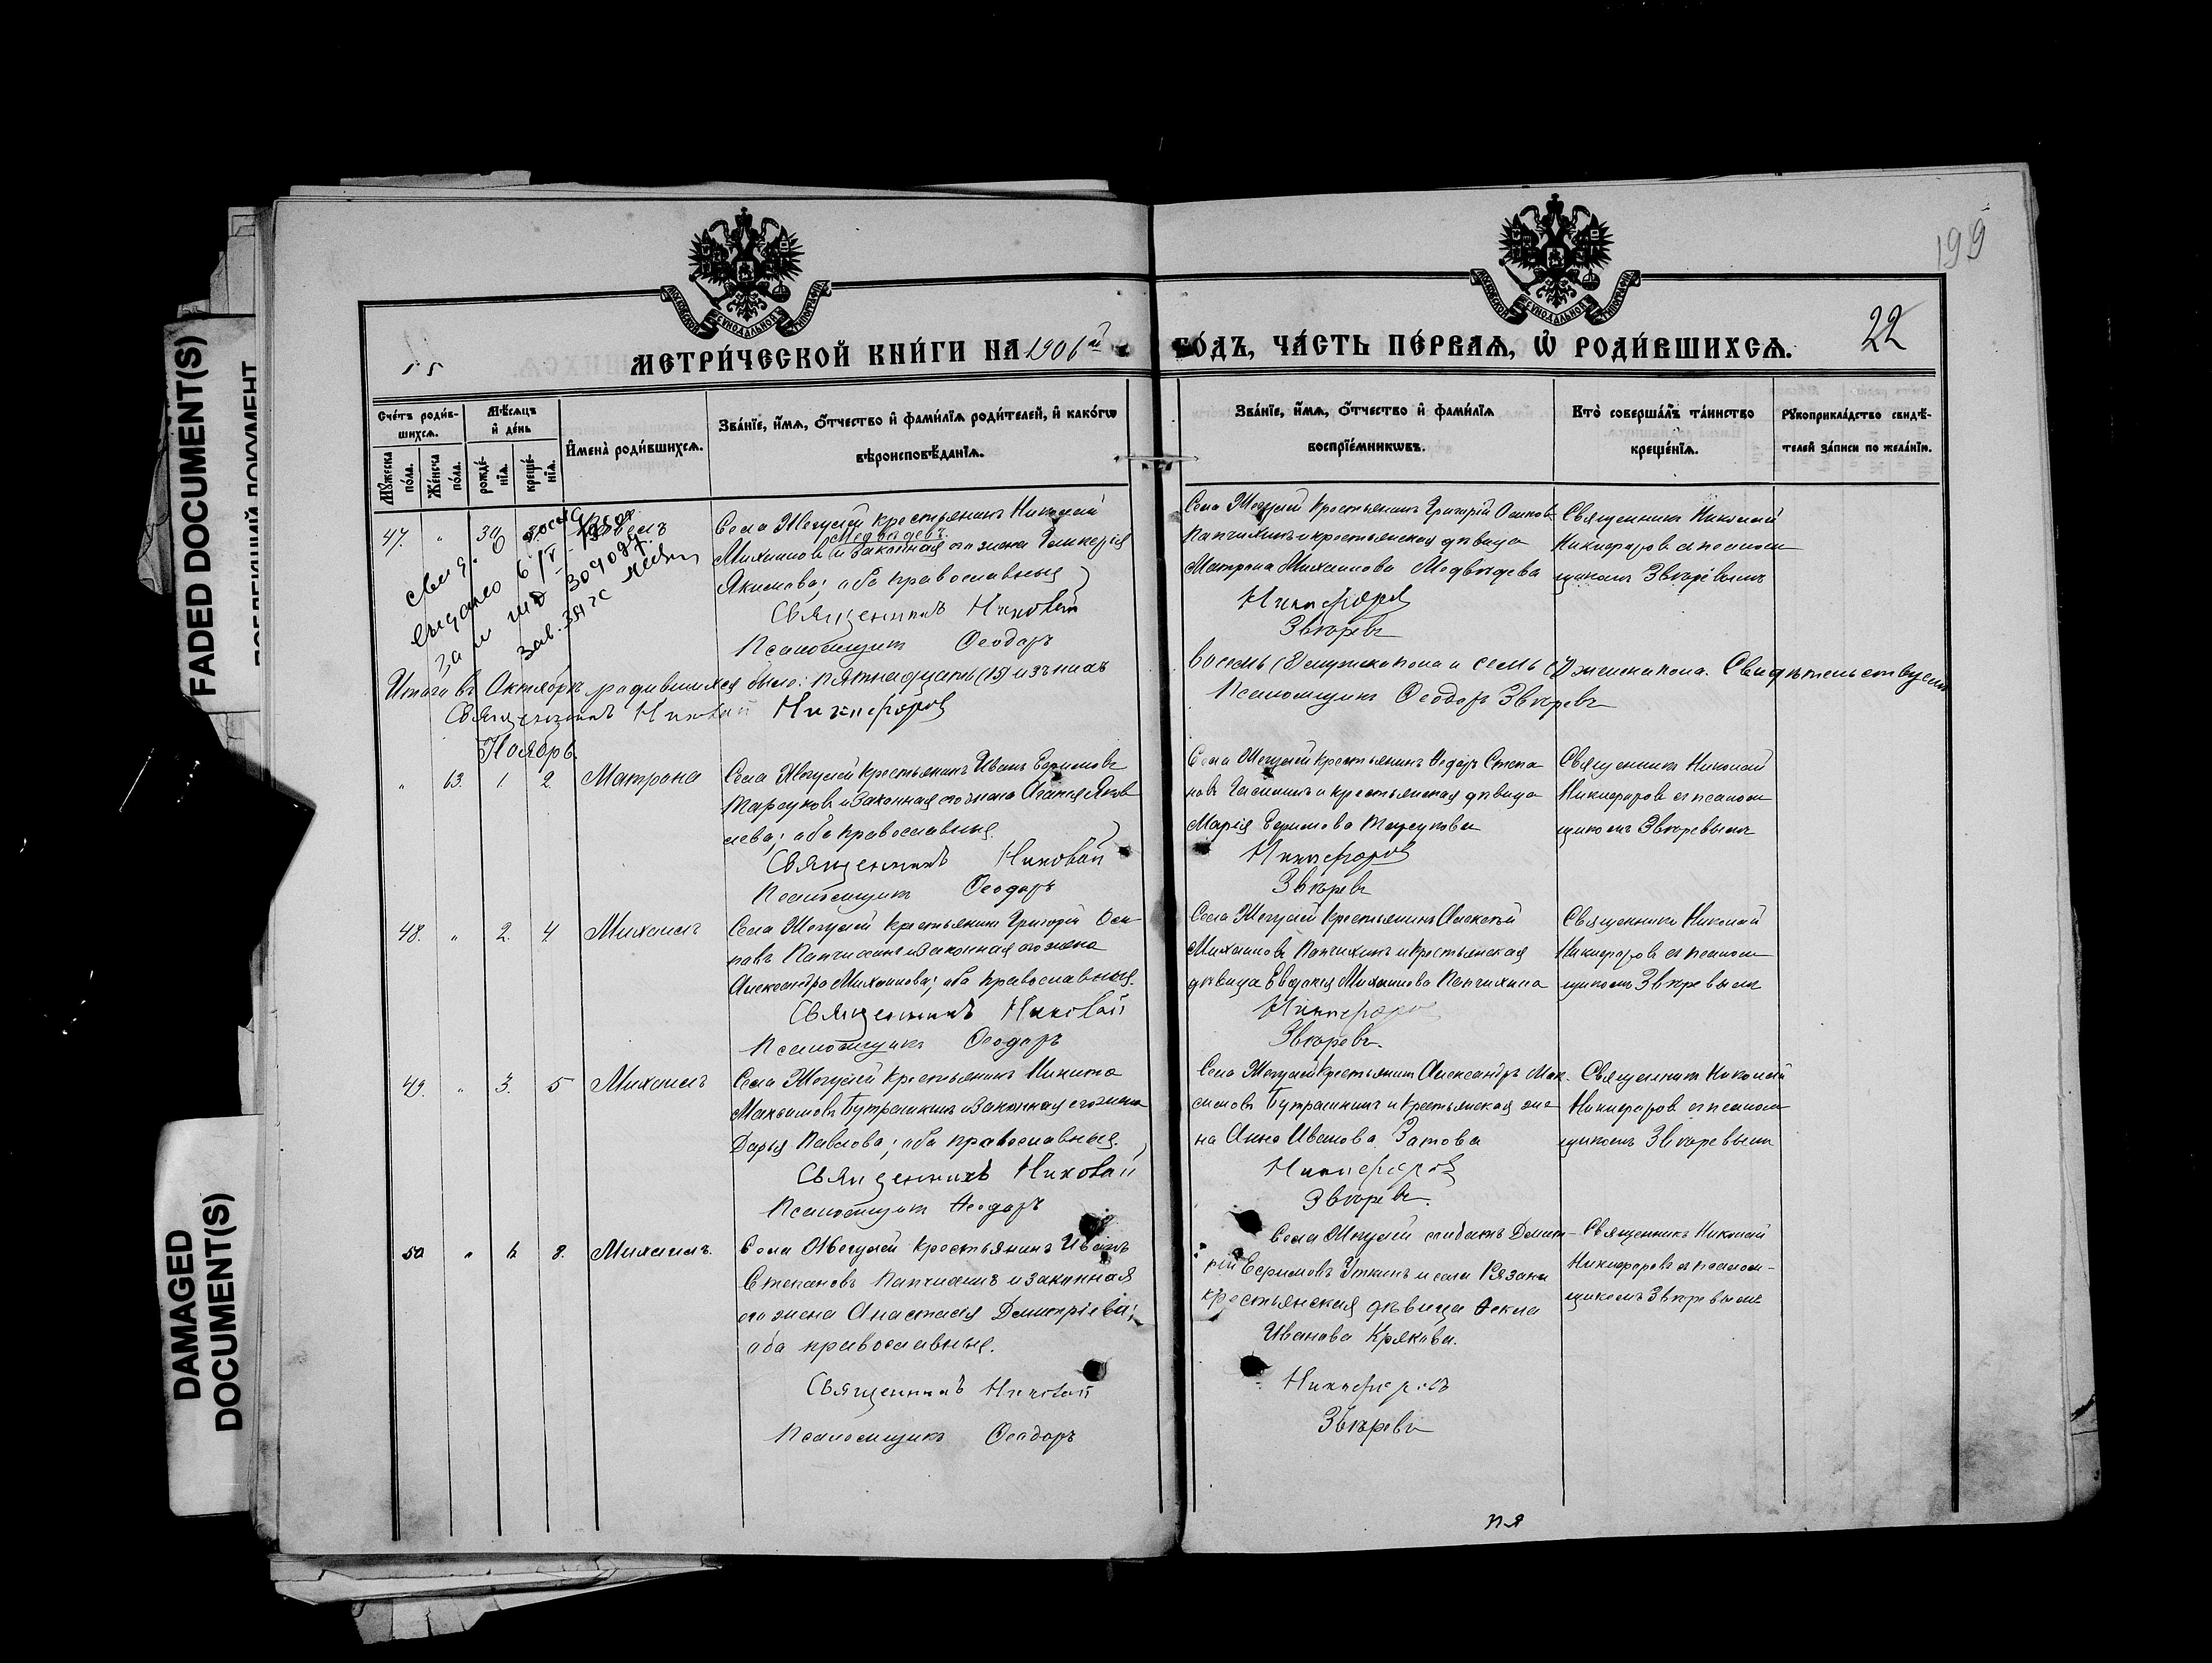 FADED DOCUMENT(S)
DAMAGED
DOCUMENT(S)
199
22
МОСКОВСКОЙ СѴНОДАЛЬНОЙ ТИПОГРАФІИ
МОСКОВСКОЙ СѴНОДАЛЬНОЙ ТИПОГРАФІИ
МЕТРИ́ЧЕСКОЙ КНИ́ГИ НА 1906й ГО́ДЪ, ЧА́СТЬ ПЕ́РВАѦ, Ѡ҆ РОДИ́ВШИХСѦ.
Сче́тъ роди́в-
шихсѧ.
Мѣ́сѧцъ
и҆ де́нь
Мꙋ́жеска
по́ла.
Же́нска
по́ла.
рожде́-
нїѧ.
креще́-
нїѧ.
И҆мена̀ роди́вшихсѧ.
Зва́нїе, и҆́мѧ, ѻ҆́тчество и҆ фами́лїѧ роди́телей, и҆ како́гѡ
вѣроисповѣ́данїѧ.
Зва́нїе, и҆́мѧ, ѻ҆́тчество и҆ фами́лїѧ
воспрїе́мникѡвъ.
Кто̀ соверша́лъ та́инство
креще́нїѧ.
Рꙋкоприкла́дство свидѣ́-
телей за́писи по жела́нїю.
47. " 30
Села Жегулей крестьянинъ Николай
Медведевъ
Михаиловъ и законная его жена Гликерія
Якимова; оба православные
Священникъ Николай
Псаломщикъ Ѳеодоръ
Села Жегулей крестьянинъ Григорій Осиповъ
Папчихинъ и крестьянская дѣвица
Матрона Михаилова Медвѣдева
Никифоровъ
Звѣревъ
Священникъ Николай
Никифоровъ съ псалом
щикомъ Звѣревымъ
выдано
Итого въ Октябрѣ родившихся было: пятнадцать (15) изъ нихъ восемь (8) мужска пола и семь (7) женска пола. Свидѣтельствуемъ
Священникъ Николай Никифоровъ Псаломщикъ Ѳеодоръ Звѣревъ
Ноябрь.
" 13. 1. 2. Матрона
Села Жегулей крестьянинъ Иванъ Ефимовъ
и законная его жена Агафія Яков
лева; оба православные.
Священникъ Николай
Псаломщикъ Ѳеодоръ
Села Жегулей крестьянинъ Ѳедоръ Степа
новъ и крестьянская дѣвица
Марія Ефимова
Никифоровъ
Звѣревъ
Священникъ Николай
Никифоровъ съ псалом
щикомъ Звѣревымъ
48. " 2. 4. Михаилъ
Села Жегулей крестьянинъ Григорій Оси-
повъ Папчихинъ и законная его жена
Александра Михаилова; оба православные.
Священникъ Николай
Псаломщикъ Ѳеодоръ
Села Жегулей крестьянинъ Алексѣй
Михаиловъ Папчихинъ и крестьянская
дѣвица Евдокія Михаилова Папчихина
Никифоровъ
Звѣревъ.
Священникъ Николай
Никифоровъ съ псалом
щикомъ Звѣревымъ
49. " 3. 5 Михаилъ
Села Жегулей крестьянинъ Никита
Максимовъ Бутрашкинъ и законная его жена
Дарья Павлова; оба православные.
Священникъ Николай
Псаломщикъ Ѳеодоръ
Села Жегулей крестьянинъ Александръ Мак-
симовъ Бутрашкинъ и крестьянская же-
на Анна Иванова Зотова
Никифоровъ
Звѣревъ.
Священникъ Николай
Никифоровъ съ псалом
щикомъ Звѣревымъ
50 " 8. Михаилъ.
Села Жегулей крестьянинъ Иванъ
Степановъ Папчихинъ и законная
его жена Анастасія Димитріева;
оба православные.
Священникъ Николай
Псаломщикъ Ѳеодоръ
Села Жегулей солдатъ Димит-
рій Ефимовъ Уткинъ и села Рязани
крестьянская дѣвица Ѳекла
Иванова Крякова.
Никифоровъ
Звѣревъ
Священникъ Николай
Никифоровъ съ псалом-
щикомъ Звѣревымъ